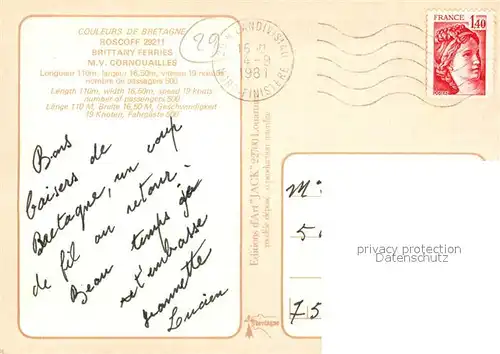 COULEURS DE BRETAGNE
ROSCOFF 29211
BRITTANY FERRIES
M.V. CORNOUAILLES
Longueur 110m, largeur 16,50m, vitesse 19 noeuds
nombre de passagers 500
Length 110m, width 16,50m, speed 19 knots
number of passengers 500
Länge 110 M, Breite 16,50 M, Geschwindigkeit
19 Knoten, Fahrgäste 500
29
LANDIVISIAU
15 H
4-9
1981
FINISTERE
FRANCE
1,40
Bons
baisers de
Bretagne, un coup
de fil au retour.
Beau temps
et t'embrasse
Jeannette
Lucien
Editions d'Art "JACK" 22700 Louannec
modèle déposé, reproduction interdite
M
5
75
privacy protection
Datenschutz
Bretagne